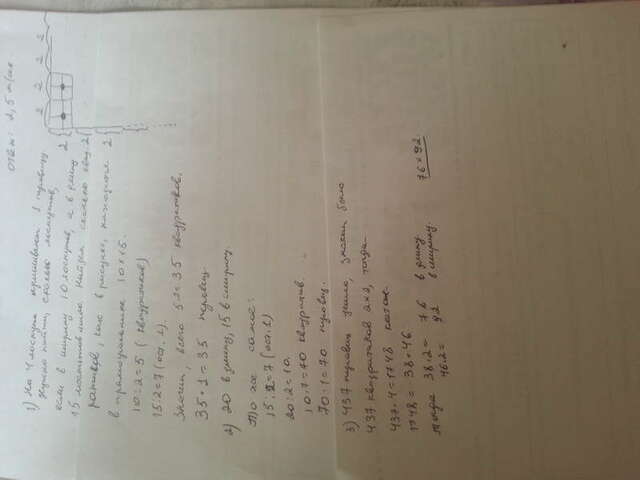 ответ: 2,5 
1) На 4 лоскута пришивают 1 пуговицу
Нужно найти, сколько лоскутов,
если в ширину 10 лоскутов, а в длину
15 лоскутов 
, как в рисунке, находится
в прямоугольнике 10×15.
10:2=5 (квадратиков)
15:2=7 (ост. 1).
Значит, всего 5·7=35 квадратов.
35·1=35 пуговиц.
2) 20 в длину, 15 в ширину.
То же самое:
15:2=7 (ост. 1)
20:2=10.
10·7=70 квадратов.
70·1=70 пуговиц.
3) 437 пуговиц ушло, значит было
437 квадратиков 2×2, тогда
437·4=1748 
1748=38×46
тогда 38·2= 76 в длину
46·2= 92 в ширину.
76×92.
2 2 2 2 2
2
2
2
2